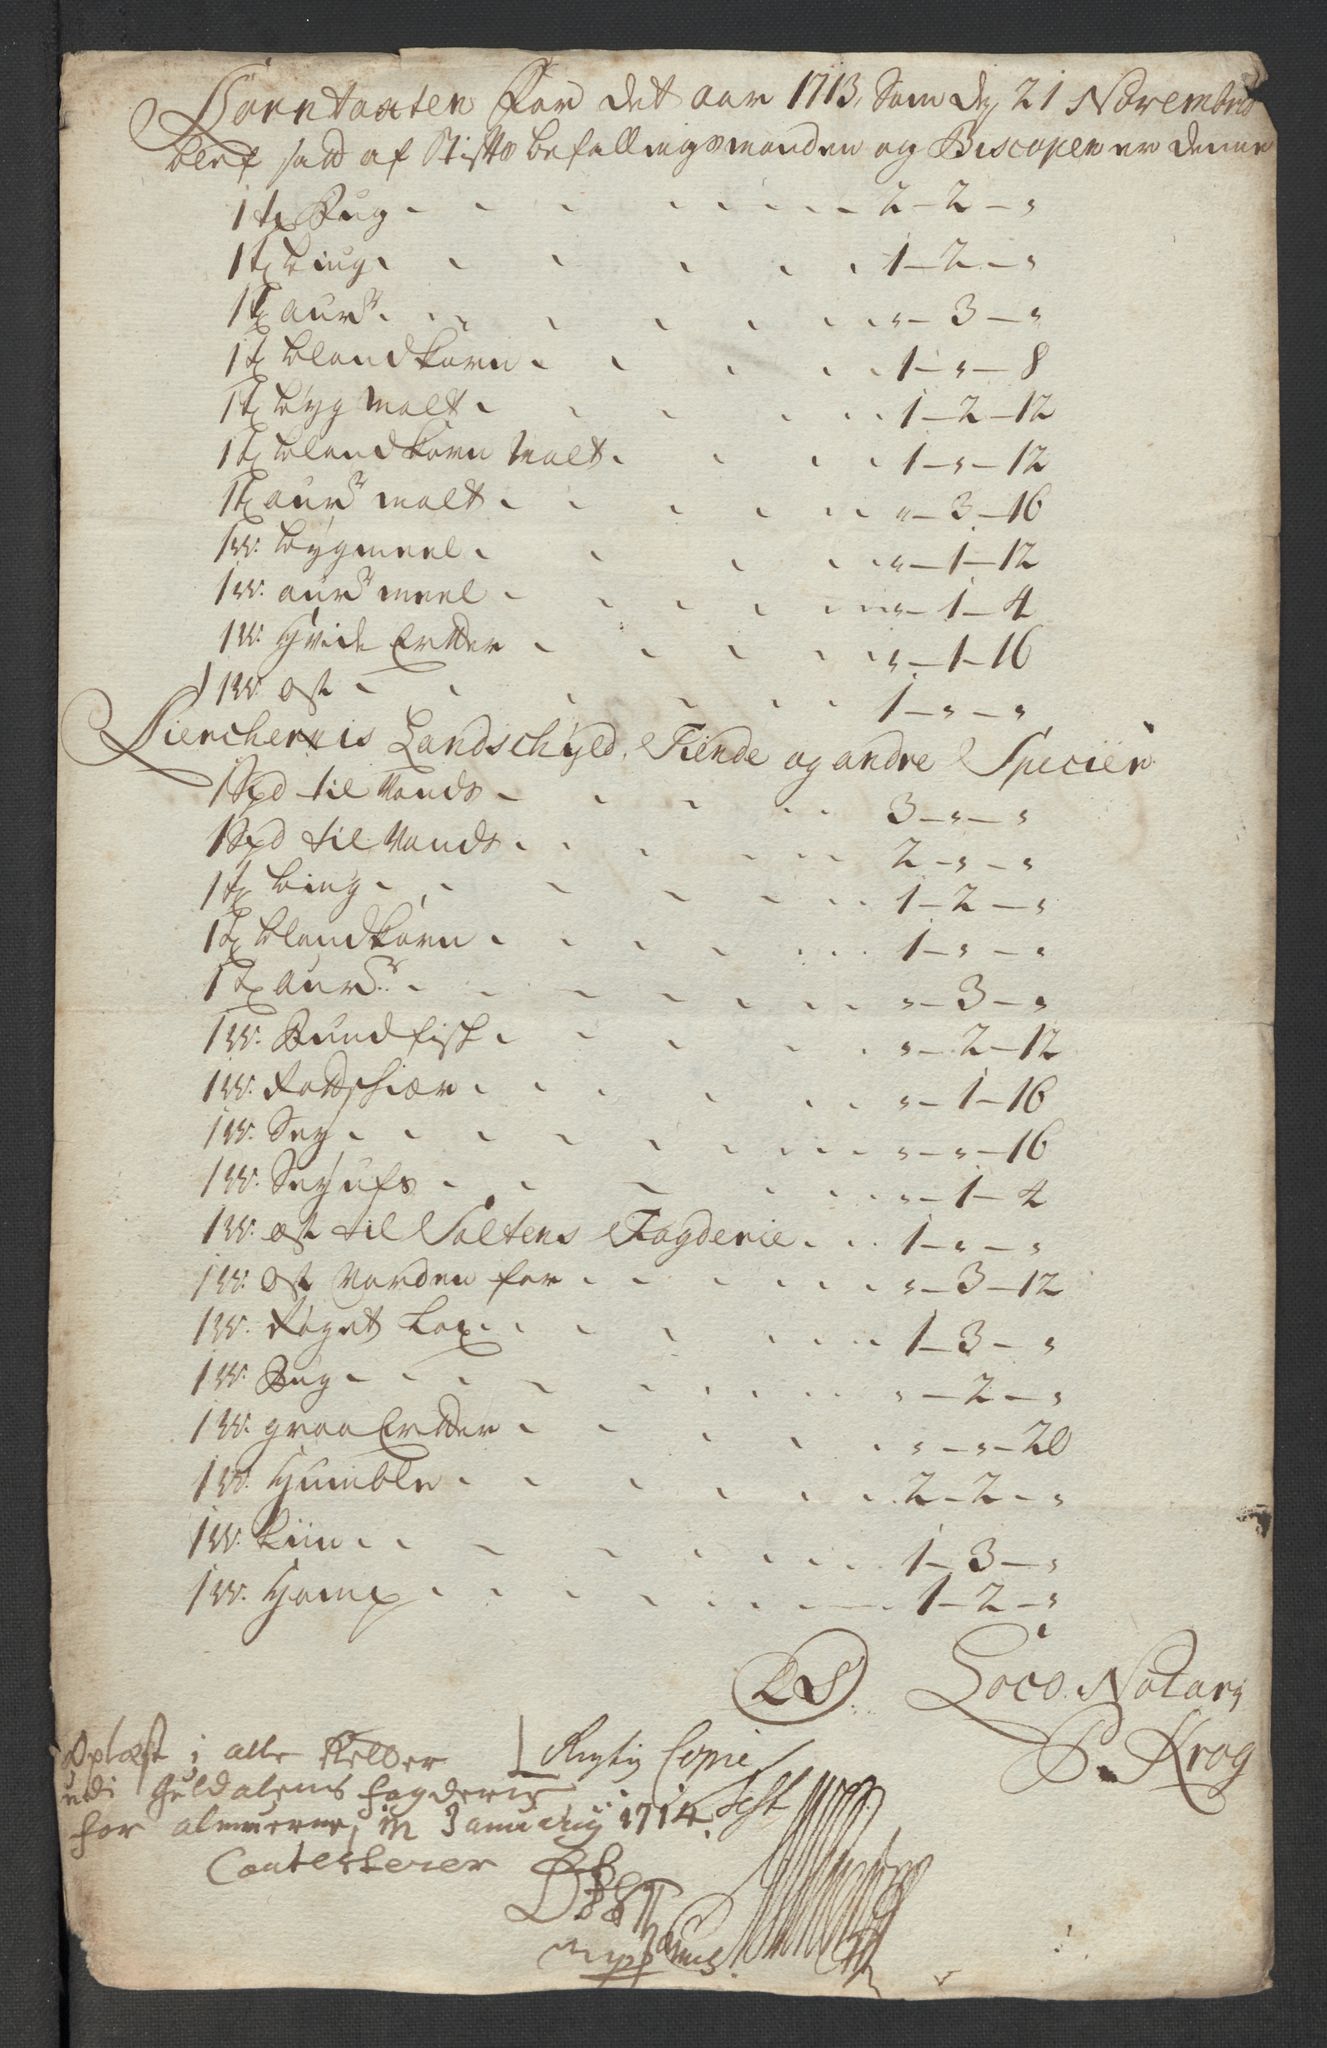 Kornntaxten For det aar 1713, Som dn 21 Novembris
blef satt af Stifts befallingsmanden og Biscopen er denne
1 tø Rug - - - - - 2 - 2 - "
1 tø biug - - - - - 1 - 2 - "
1 tø aur - - - - - " - 3 - "
1 tø blandkorn - - - - 1 - " - 8
1 tø byg Malt - - - - 1 - 2 - 12
1 tø blandkorn Malt - - - 1 - " - 12
1 tø aur malt - - - - " - 3 - 16
1 W: bygmeel - - - - " - 1 - 12
1 W: aur meel - - - - " - 1 - 4
1 W: Hvide Ertter - - - - " - 1 - 16
1 W: ost - - - - 1 - " - "
Kierchernis Landschyld, Tiende og andre Specier
1 Spd til Vands - - - - 3 - " - "
1 Spd til Vands - - - - 2 - " - "
1 tø biug - - - - 1 - 2 - "
1 tø blandkorn - - - - 1 - " - "
1 tø aur - - - - " - 3 - "
1 W: Rundfisk - - - - " - 2 - 12
1 W: Rottschiær - - - - " - 1 - 16
1 W: Sey - - - - " - " - 16
1 W: Seyufs - - - - " - 1 - 4
1 W: ost til Saltens Fogderie - - 1 - " - "
1 W: ost Norden for - - - - " - 3 - 12
1 W: Røget Lax - - - - 1 - 3 - "
1 W: Rug - - - - " - 2 - "
1 W: graa Ertter - - - - " - " - 20
1 W: Humble - - - - 2 - 2 - "
1 W: Liin - - - - 1 - 3 - "
1 W: Hamp - - - - 1 - 2 - "
LS Loco Notary
P. Krog
Oplæst i alle Kelder
udi Guldalens fogderie
for almuerne, in January 1714
Contesterer
Rigtig Copie
Test